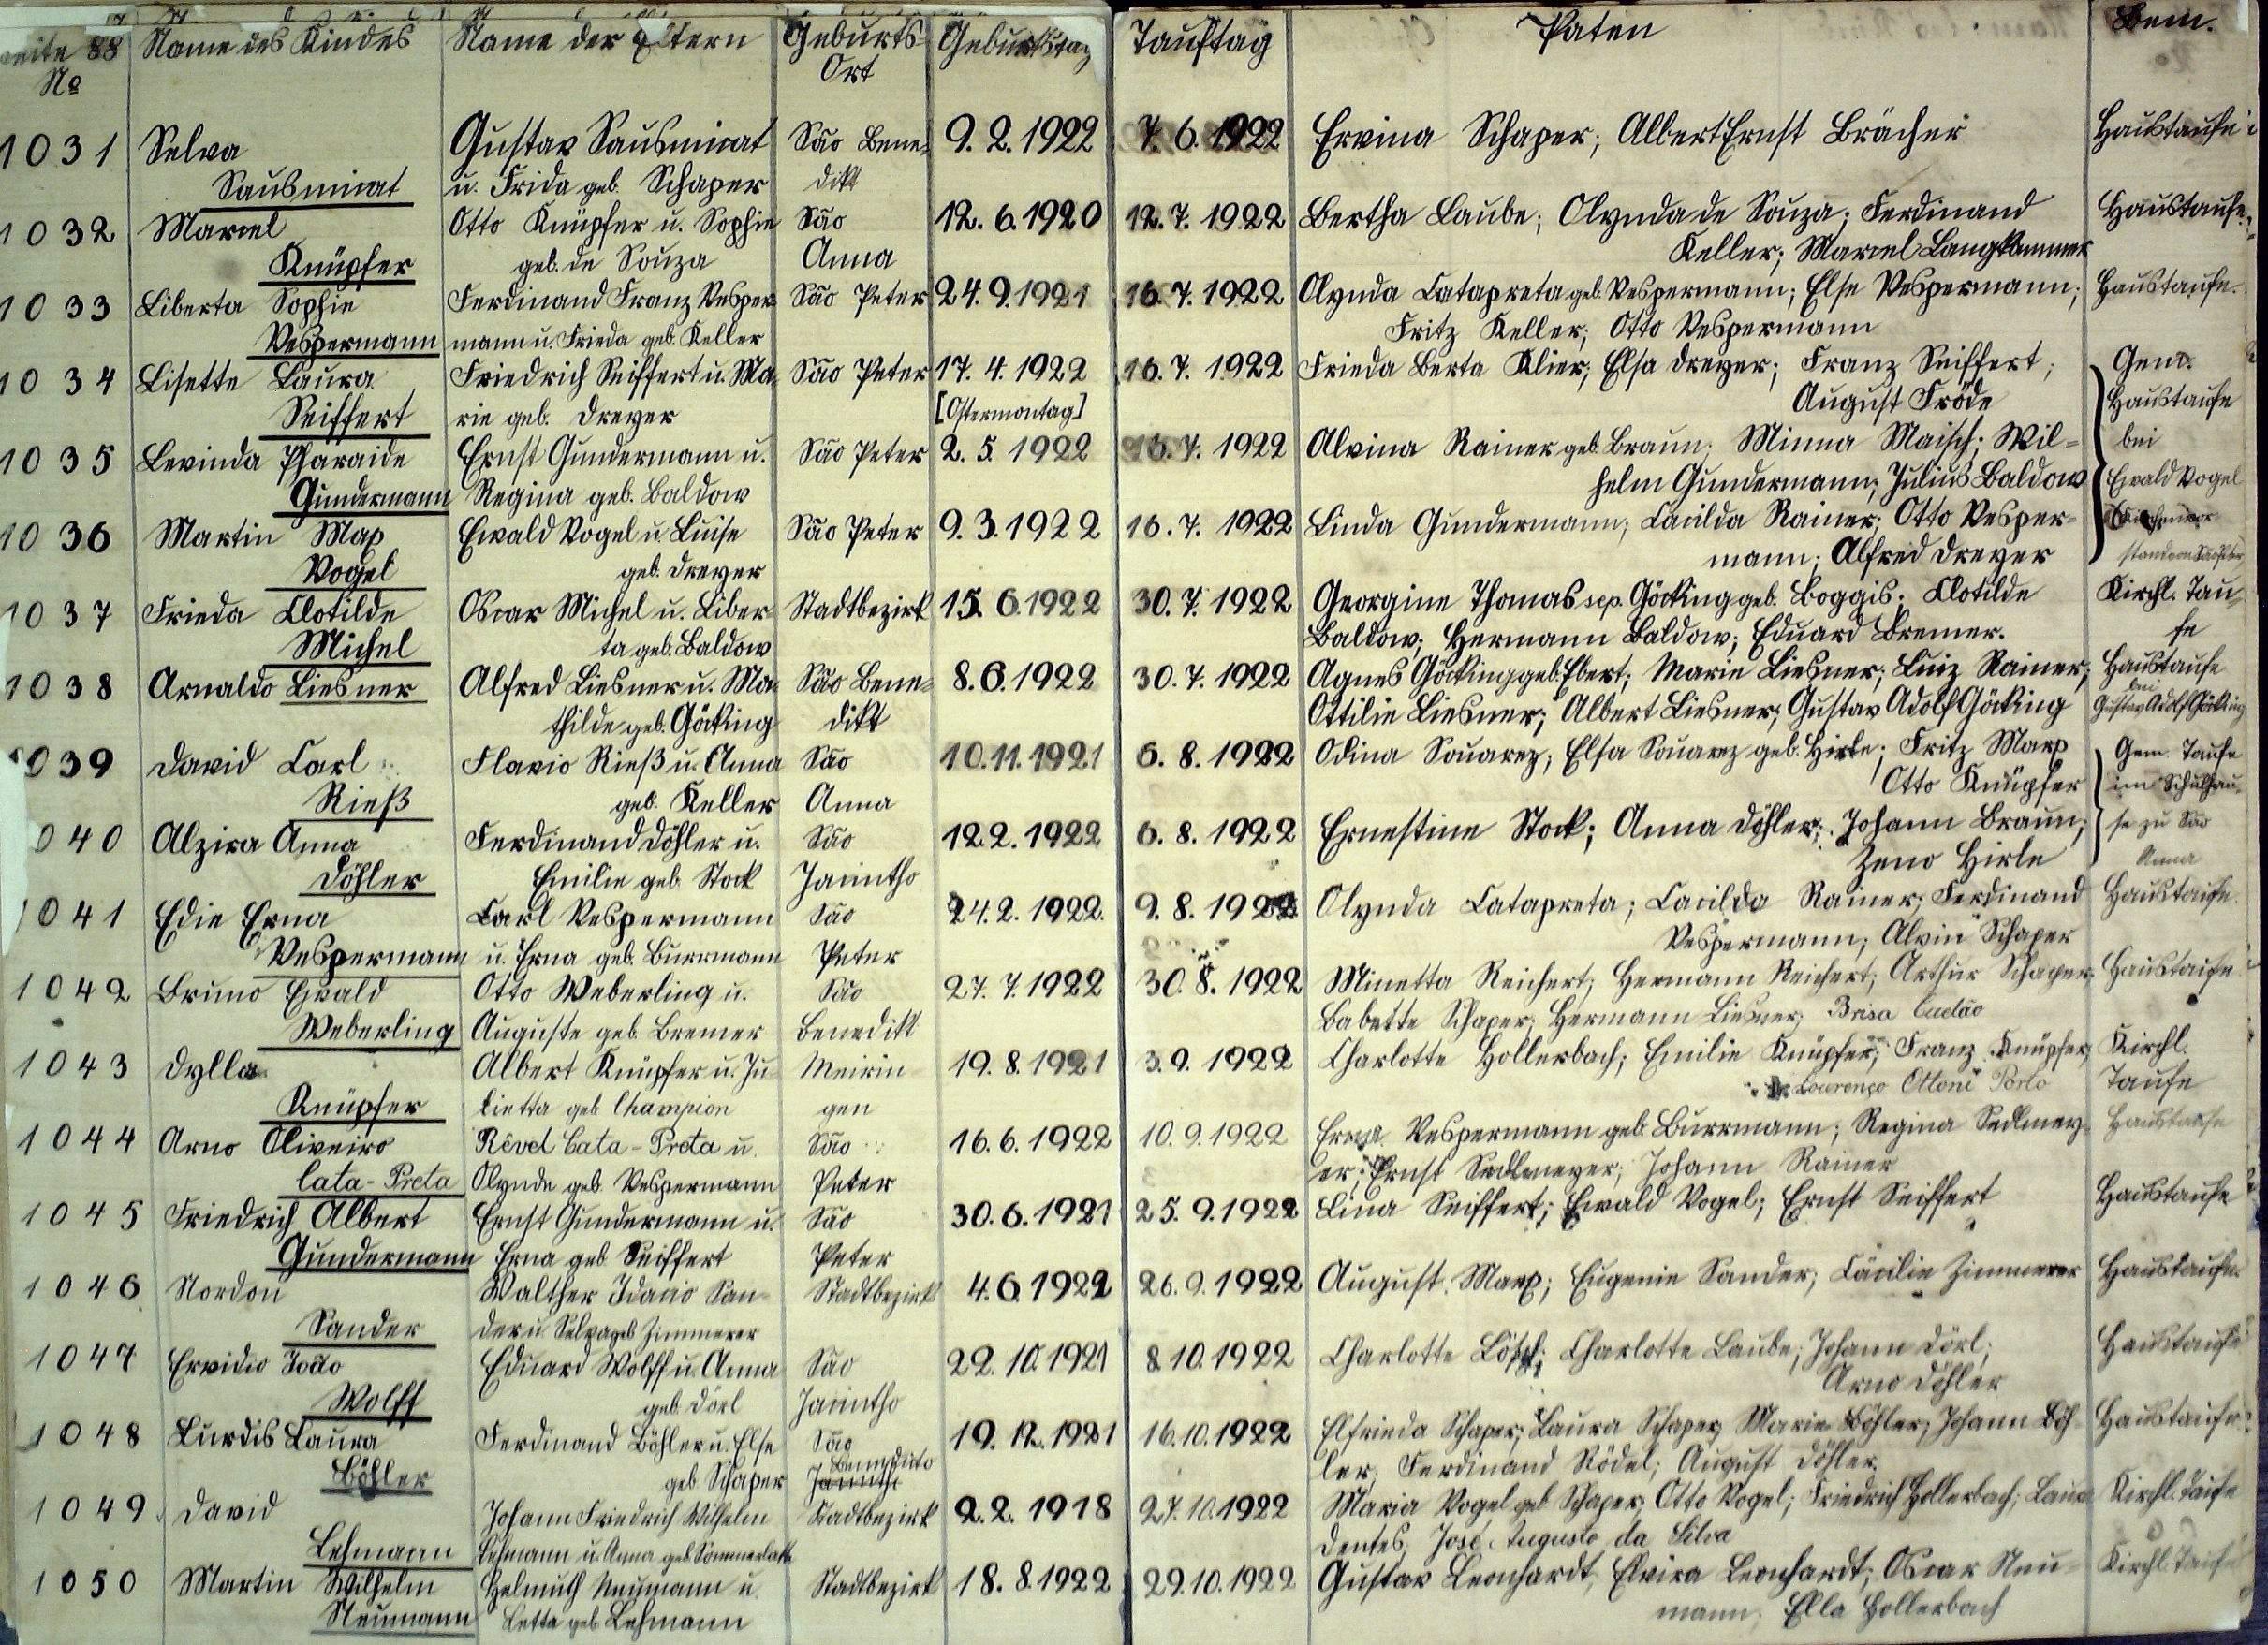 Seite 88 Name des Kindes Name der Eltern Geburts- Geburtstag Tauftag Paten Bem.
No Ort
1031 Selva Gustav Sausmicat São Bene- 9.2.1922 7.6.1922 Ervina Schaper; Albert Ernst Brächer Haustaufe
Sausmicat u. Frida geb. Schaper dikt
1032 Marcel Otto Knüpfer u. Sophie São 12.6.1920 12.7.1922 Bertha Laube; Olynda de Souza; Ferdinand Haustaufe
Knüpfer geb. de Souza Anna Keller; Marcel Langkammer
1033 Liberta Sophie Ferdinand Franz Vesper- São Peter 24.9.1921 16.7.1922 Olynda Catapreta geb. Vespermann; Else Vespermann; Haustaufe.
Vespermann mann u. Frieda geb. Keller Fritz Keller; Otto Vespermann
1034 Lisette Laura Friedrich Seiffert u. Ma- São Peter 17.4.1922 16.7.1922 Frieda Berta Klier; Elsa Dreyer; Franz Seiffert; Gem.
Seiffert rie geb. Dreyer [Ostermontag] August Fröde Haustaufe
1035 Levinda Pharaide Ernst Gundermann u. São Peter 2.5.1922 16.7.1922 Alvina Rainer geb. Braun; Minna Maisch; Wil- bei
Gundermann Regina geb. Baldow helm Gundermann; Julius Baldow Ewald Vogel
1036 Martin Max Ewald Vogel u. Luise São Peter 9.3.1922 16.7.1922 Linda Gundermann; Cacilda Rainer; Otto Vesper- Kirchenvor-
Vogel geb. Dreyer mann; Alfred Dreyer stand von São Peter
1037 Frieda Clotilde Oscar Michel u. Liber- Stadtbezirk 15.6.1922 30.7.1922 Georgine Thomas sep. Göcking geb. Boggis; Clotilde Kirchl. Tau-
Michel ta geb. Baldow Baldow; Hermann Baldow; Eduard Bremer. fe
1038 Arnaldo Liesner Alfred Liesner u. Ma- São Bene- 8.6.1922 30.7.1922 Agnes Göcking geb. Ebert; Marie Liesner; Luiz Rainer; Haustaufe bei
thilde geb. Göcking dikt Ottilie Liesner; Albert Liesner; Gustav Adolf Göcking Gustav Adolf Göcking
1039 David Carl Flavio Rieß u. Anna São 10.11.1921 6.8.1922 Odina Souarez; Elsa Souarez geb. Hirle; Fritz Marx Gem. Taufe
Rieß geb. Keller Anna Otto Knüpfer im Schulhau-
1040 Alzira Anna Ferdinand Döhler u. São 12.2.1922 6.8.1922 Ernestine Stock; Anna Döhler; Johann Braun; se zu São
Döhler Emilie geb. Stock Jacintho Zeno Hirle Anna
1041 Edie Erna Carl Vespermann São 24.2.1922. 9.8.1922 Olynda Catapreta; Cacilda Rainer; Ferdinand Haustaufe.
Vespermann u. Erna geb. Burrmann Peter Vespermann; Alvin Schaper
1042 Bruno Ewald Otto Weberling u. São 27.7.1922 30.8.1922 Minetta Reichert; Hermann Reichert; Arthur Schaper; Haustaufe
Weberling Auguste geb. Bremer Benedikt Babette Schaper; Hermann Liesner; Brisa
1043 Dylla Albert Knüpfer u. Ju- Meirin- 19.8.1921 3.9.1922 Charlotte Hollerbach; Emilie Knüpfer; Franz Knüpfer; Kirchl.
Knüpfer lietta geb. Champion gen Lourenço Ottoni Porto Taufe
1044 Arno Oliveiro Rêvel Cata-Preta u. São 16.6.1922 10.9.1922 Erna Vespermann geb. Burrmann; Regina Sedlmey- Haustaufe
Cata-Preta Olynda geb. Vespermann Peter er; Ernst Sedlmeyer; Johann Rainer
1045 Friedrich Albert Ernst Gundermann u. São 30.6.1921 25.9.1922 Lina Seiffert; Ewald Vogel; Ernst Seiffert Haustaufe
Gundermann Erna geb. Seiffert Peter
1046 Nordon Walther Idacio San- Stadtbezirk 4.6.1922 26.9.1922 August Marx; Eugenie Sander; Cäcilie Zimmerer Haustaufe
Sander der u. Selva geb. Zimmerer
1047 Ervidio João Eduard Wolff u. Anna São 22.10.1921 8.10.1922 Charlotte Lösch; Charlotte Laube; Johann Dörl; Haustaufe
Wolff geb. Dörl Jacintho Arno Döhler
1048 Lurdis Laura Ferdinand Böhler u. Else São 19.12.1921 16.10.1922 Elfrieda Schaper; Laura Schaper; Marie Böhler; Johann Böh- Haustaufe
Böhler geb. Schaper Benedicto Jacintho ler; Ferdinand Rödel; August Döhler.
1049 David Johann Friedrich Wilhelm Stadtbezirk 2.2.1918 27.10.1922 Maria Vogel geb. Schaper; Otto Vogel; Friedrich Hollerbach; Laura Kirchl. Taufe
Lehmann Lehmann u. Anna geb. Sommerlatte Dentes; José Augusto da Silva
1050 Martin Wilhelm Helmuth Neumann u. Stadtbezirk 18.8.1922 29.10.1922 Gustav Leonhardt; Elvira Leonhardt; Oscar Neu- Kirchl. Taufe
Neumann Letta geb. Lehmann mann; Ella Hollerbach